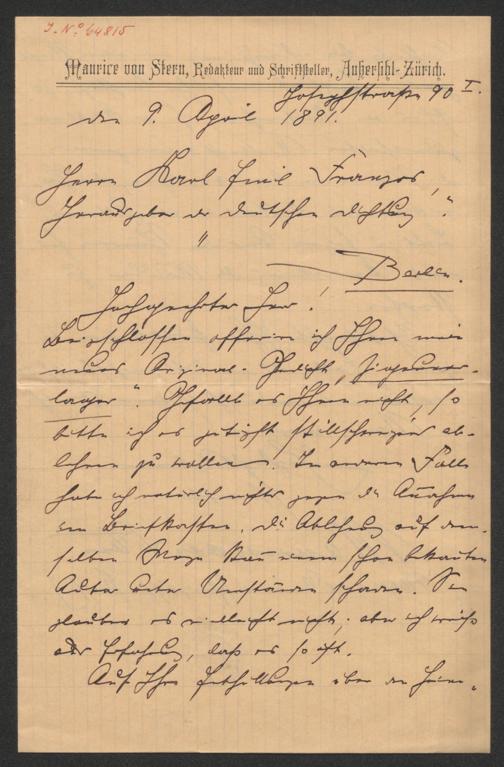 J. No 64815
Maurice von Stern, Redakteur und Schriftsteller, Außersihl-Zürich.
Josephstraße 90 I.
den 9. April 1891.
Herrn Karl Emil Franzos,
Herausgeber der "Deutschen Dichtung".
Berlin.
Hochgeehrter Herr!
Beigeschlossen offerire ich Ihnen mein
neues Original-Gedicht "Zigeuner-
lager". Gefällt es Ihnen nicht, so
bitte ich es gütigst stillschweigend ab-
lehnen zu wollen. Im anderen Falle
habe ich natürlich nichts gegen die Annahme
im Briefkasten. Die Ablehnung auf dem-
selben Wege kann einem schon bekannten
Autor unter Umständen schaden. Sie
glauben es vielleicht nicht; aber ich weiß
aus Erfahrung, daß es so ist.
Auf Ihre über den